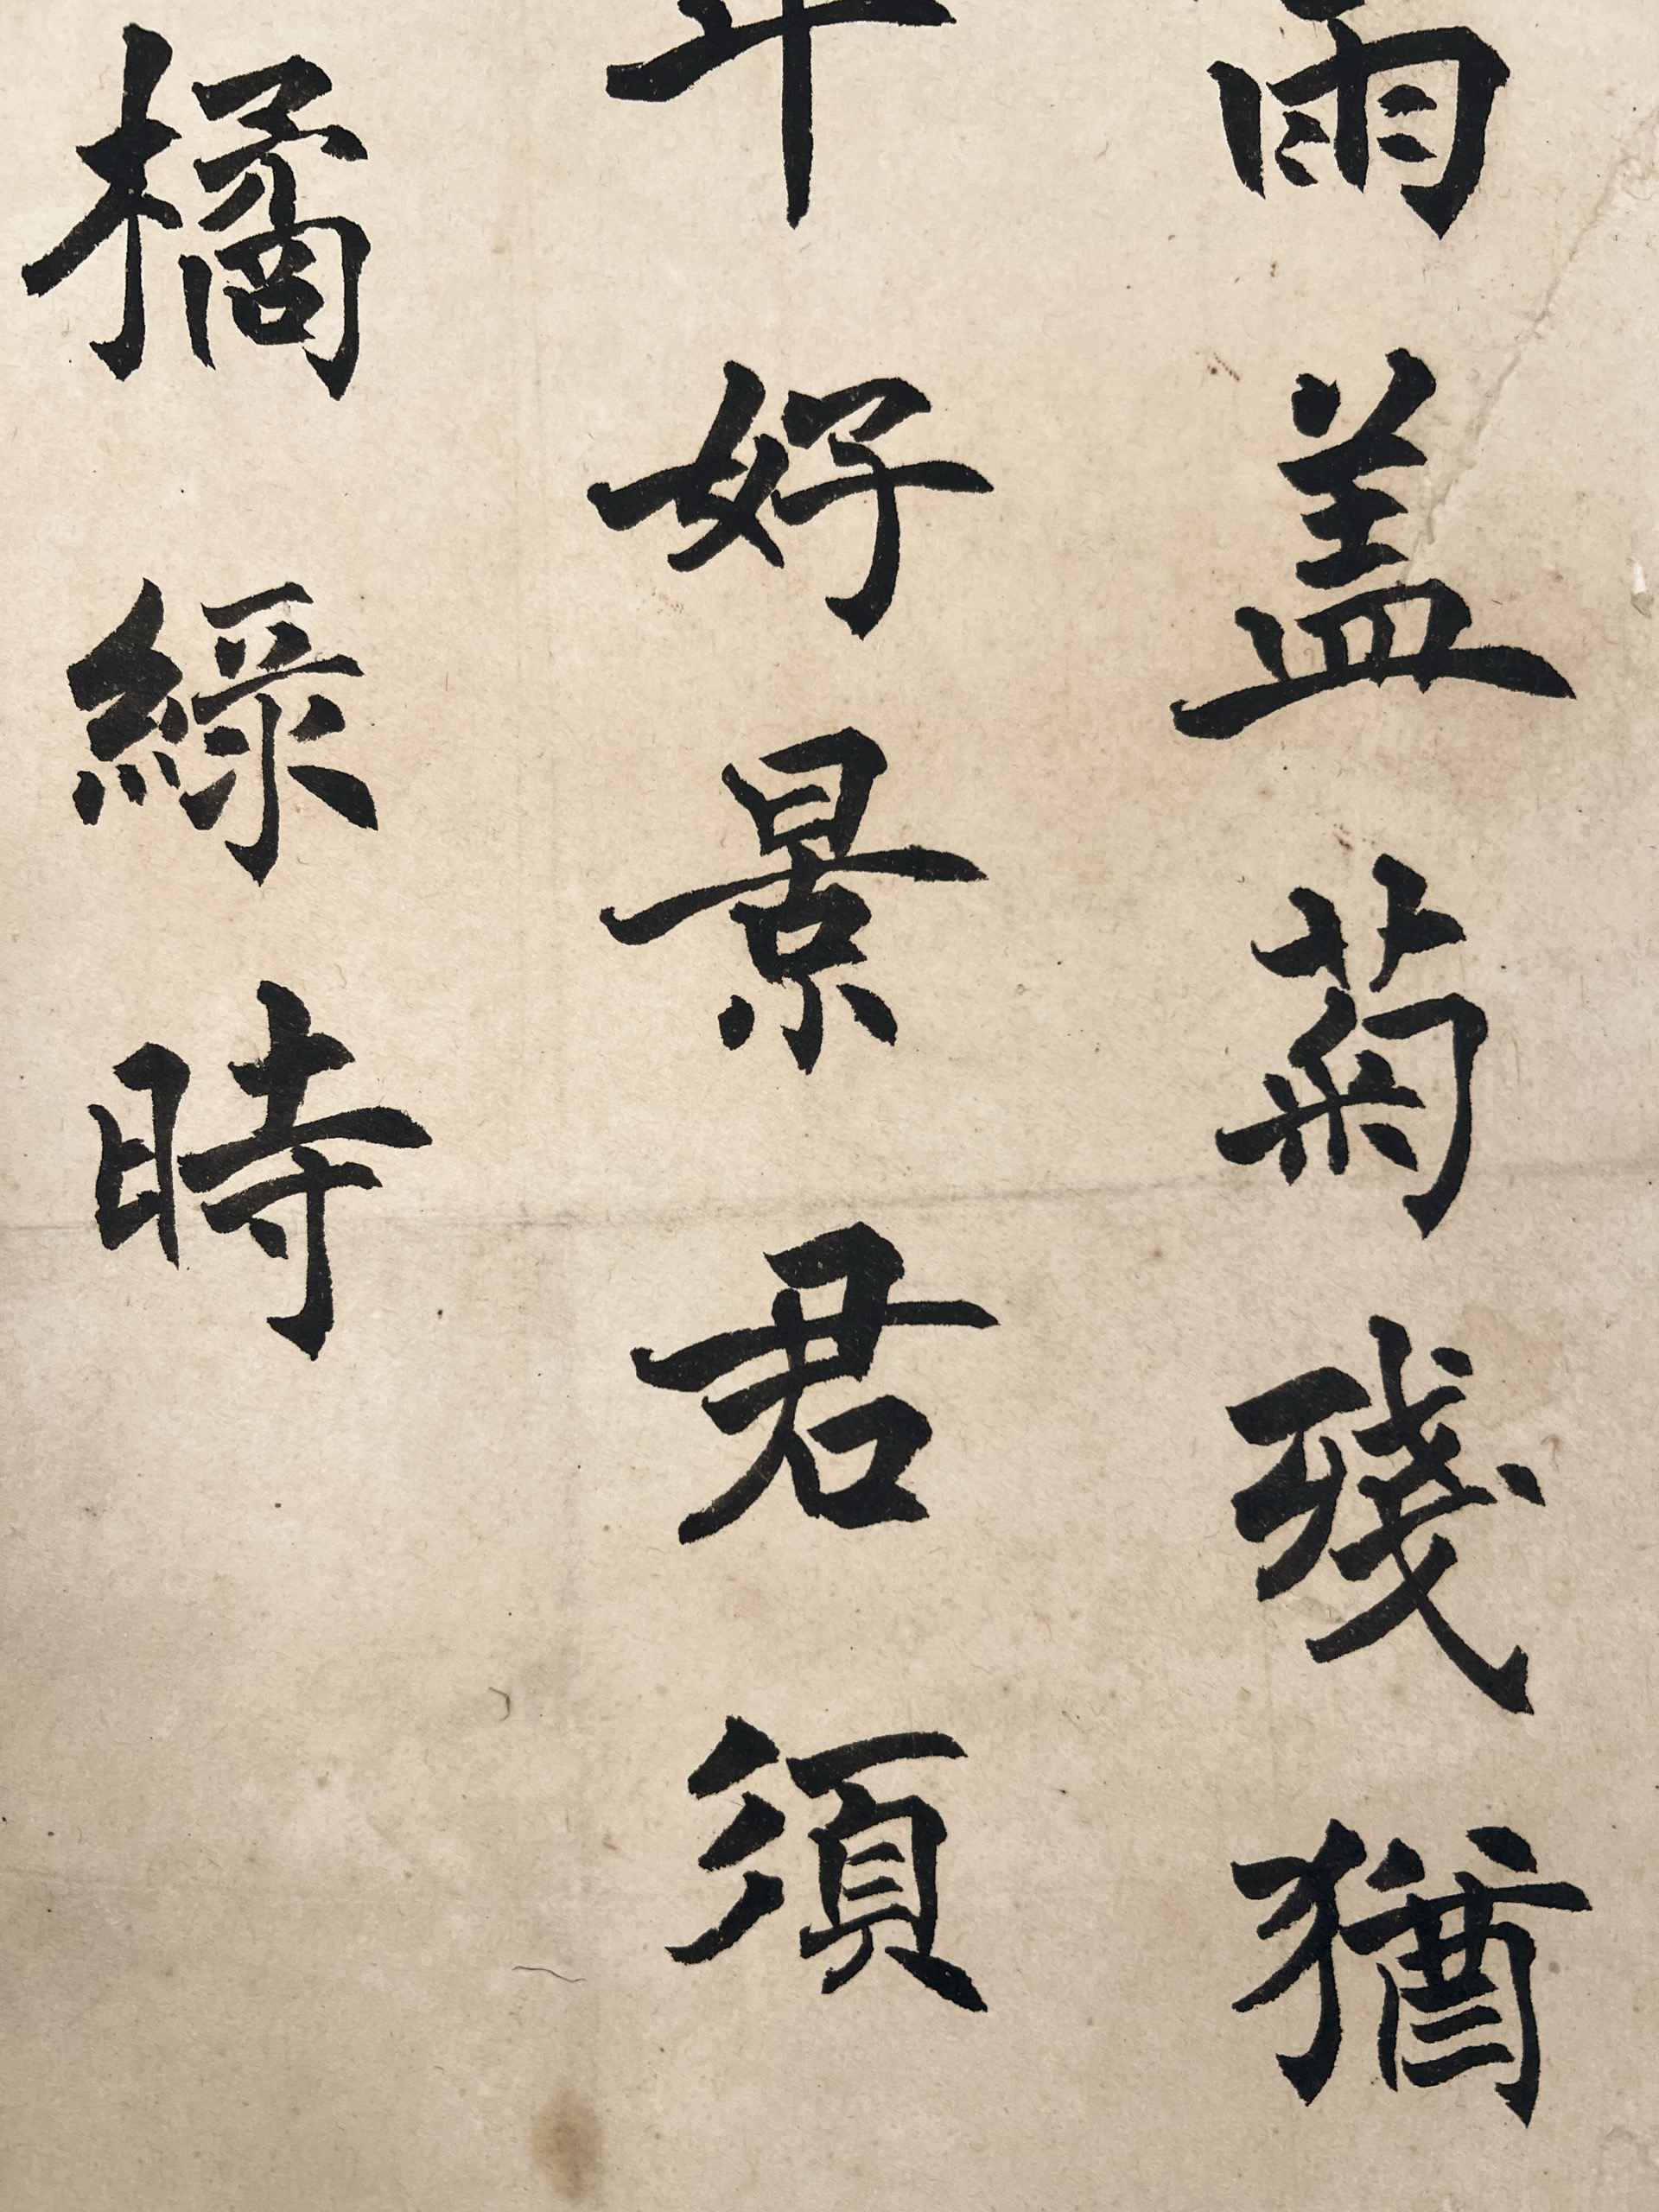 雨盖菊殘猶
年好景君須
橘綠時